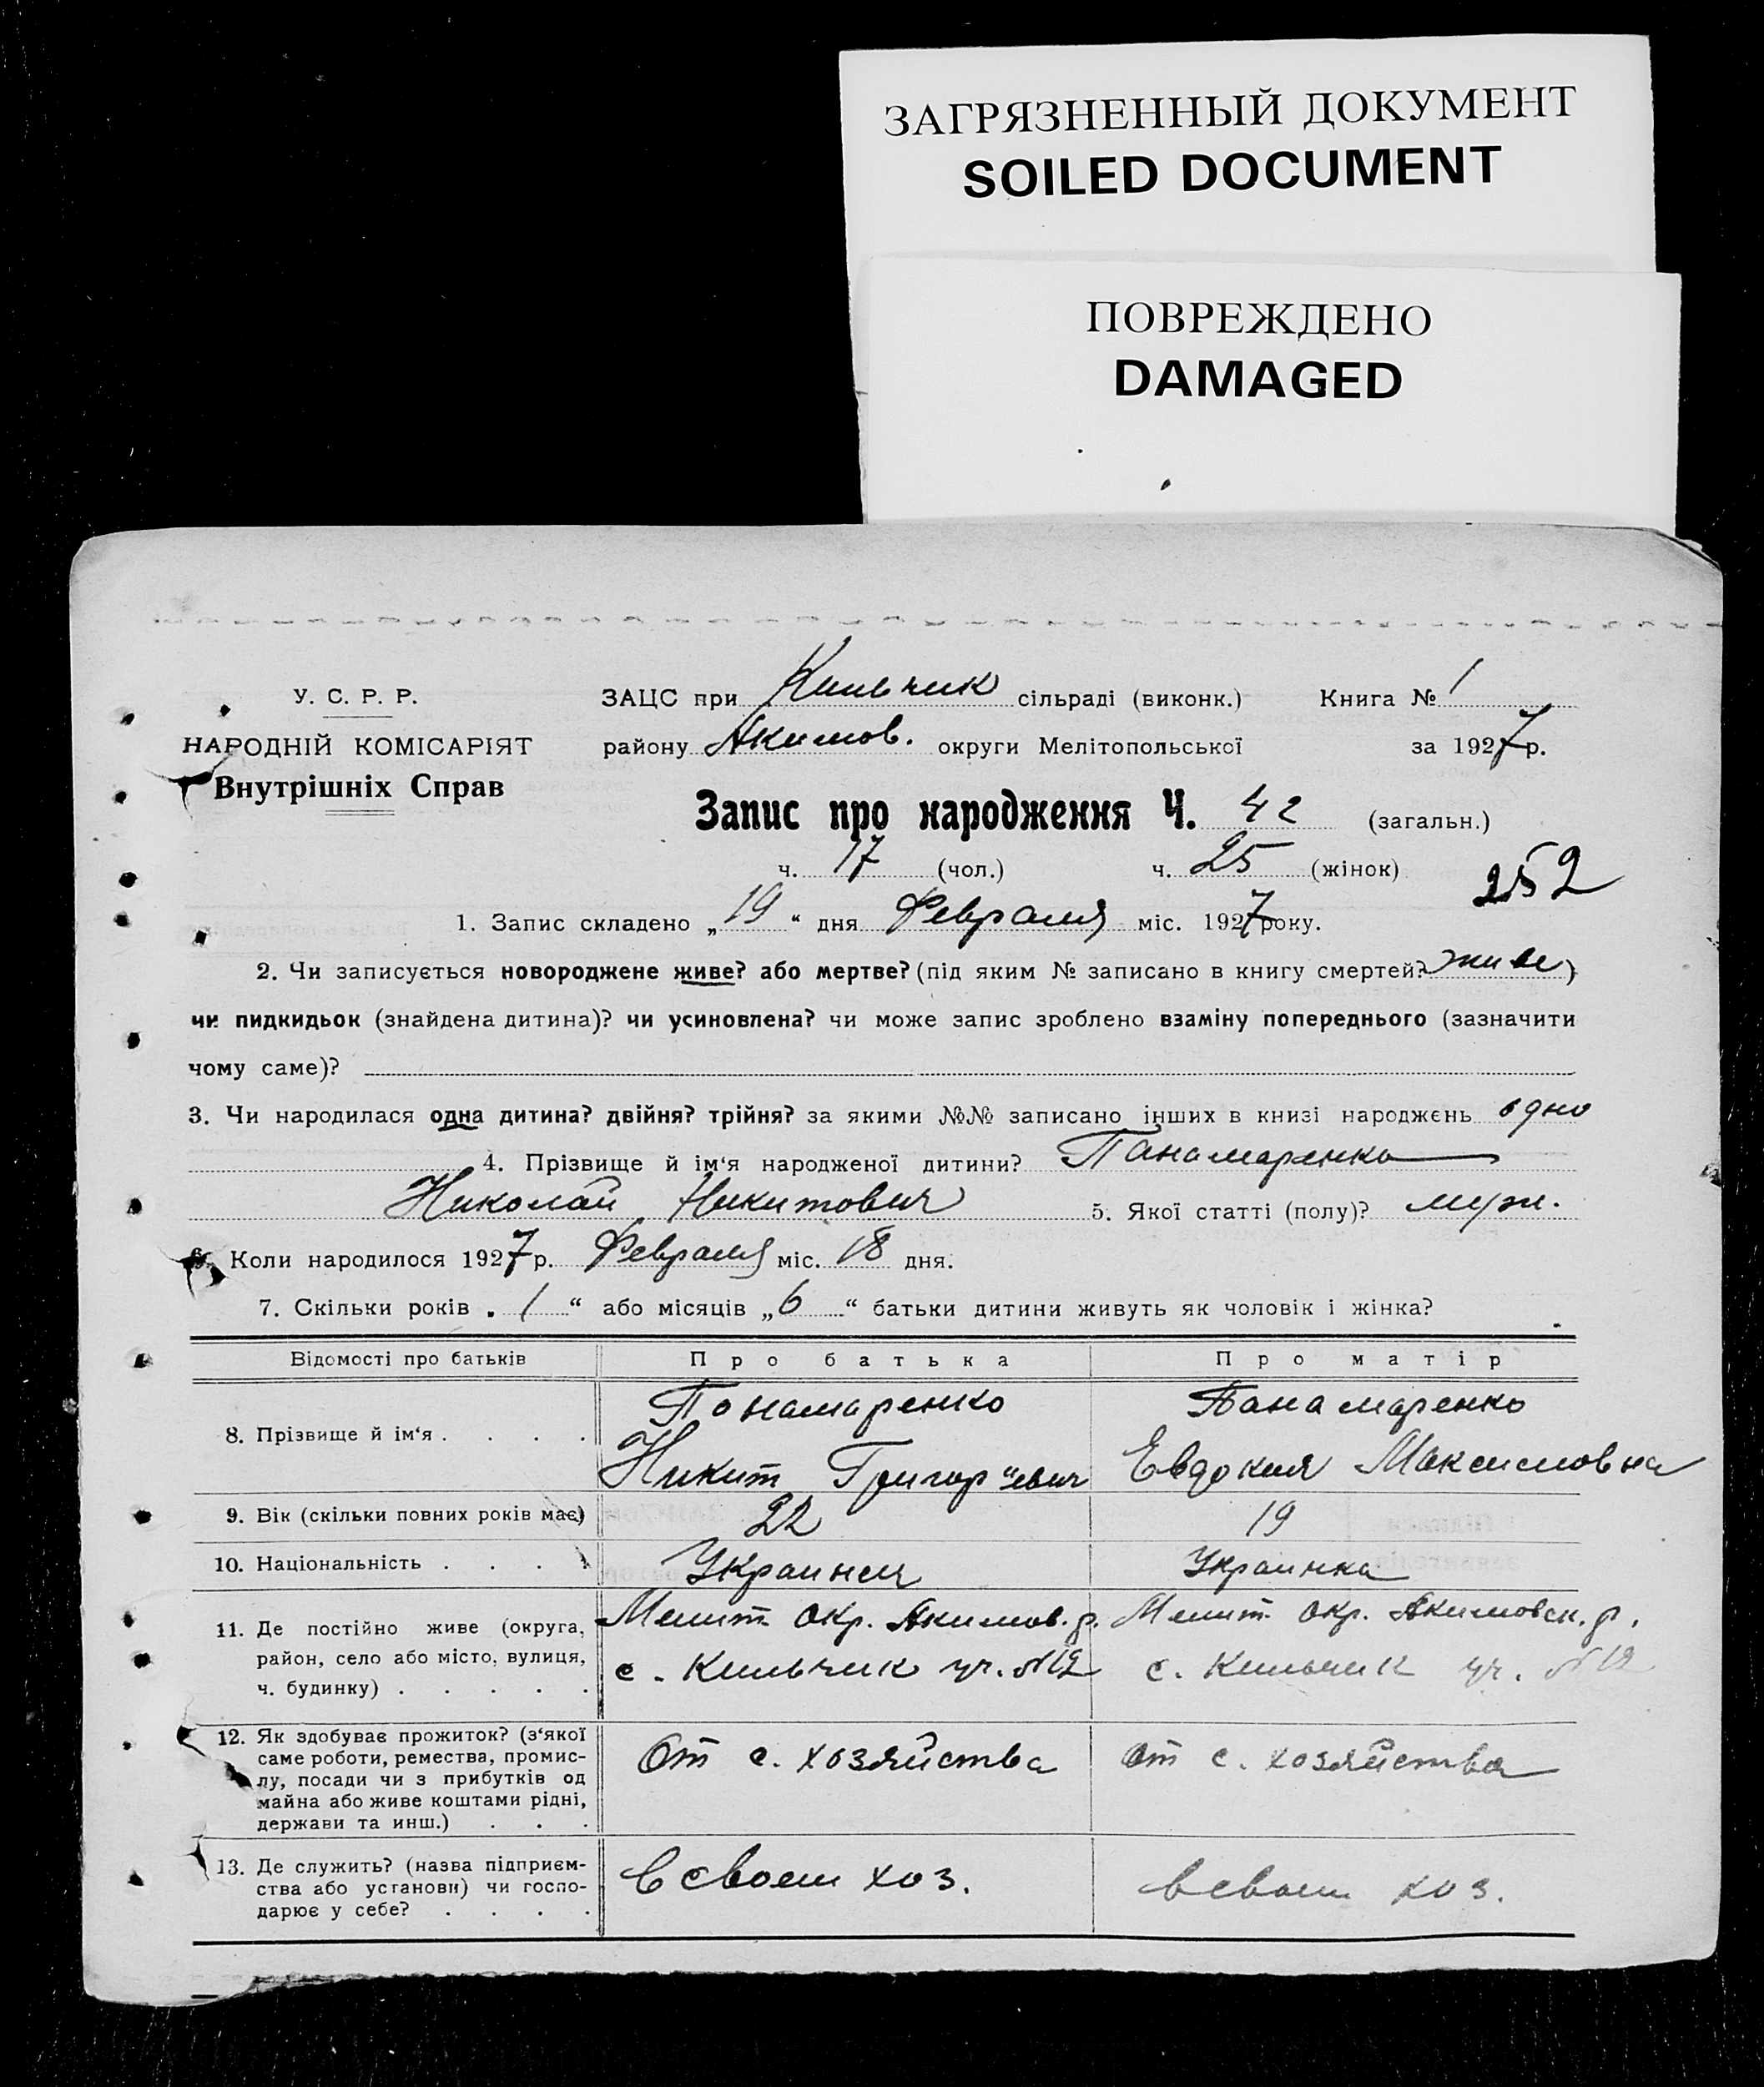 ЗАГРЯЗНЕННЫЙ ДОКУМЕНТ
SOILED DOCUMENT
ПОВРЕЖДЕНО
DAMAGED
У. С. Р. Р.
НАРОДНІЙ КОМІСАРІЯТ
Внутрішніх Справ
ЗАЦС при Кильчик сільраді (виконк.) Книга № 1
району Акимов. округи Мелітопольської за 1927 р.
Запис про народження Ч. 42 (загальн.)
ч. 17 (чол.) ч. 25 (жінок)
252
1. Запис складено „19“ дня Февраля міс. 1927 року.
2. Чи записується новороджене живе? або мертве? (під яким № записано в книгу смертей? живе)
чи пидкидьок (знайдена дитина)? чи усиновлена? чи може запис зроблено взаміну попереднього (зазначити
чому саме)?
3. Чи народилася одна дитина? двійня? трійня? за якими №№ записано інших в книзі народжень одно
4. Прізвище й ім‘я народженої дитини? Панамаренко
Николай Никитович 5. Якої статті (полу)? муж.
6. Коли народилося 1927 р. Февраля міс. 18 дня.
7. Скільки років „1“ або місяців „6“ батьки дитини живуть як чоловік і жінка?
Відомості про батьків Про батька Про матір
8. Прізвище й ім‘я . . . .
Понамаренко
Никит Григорьевич
Панамаренко
Евдокия Максимовна
9. Вік (скільки повних років має) 22 19
10. Національність . . . . Украинец Украинка
11. Де постійно живе (округа,
район, село або місто, вулиця,
ч. будинку) . . . . .
Мелит. окр. Акимов. р.
с. Кильчик уч. №12
Мелит. окр. Акимовск. р.
с. Кильчик уч. №12
12. Як здобуває прожиток? (з‘якої
саме роботи, ремества, промис-
лу, посади чи з прибутків од
майна або живе коштами рідні,
держави та инш.) . . .
От с. хозяйства
от с. хозяйства
13. Де служить? (назва підприєм-
ства або установи) чи госпо-
дарює у себе? . . . .
в своем хоз.
в своем хоз.